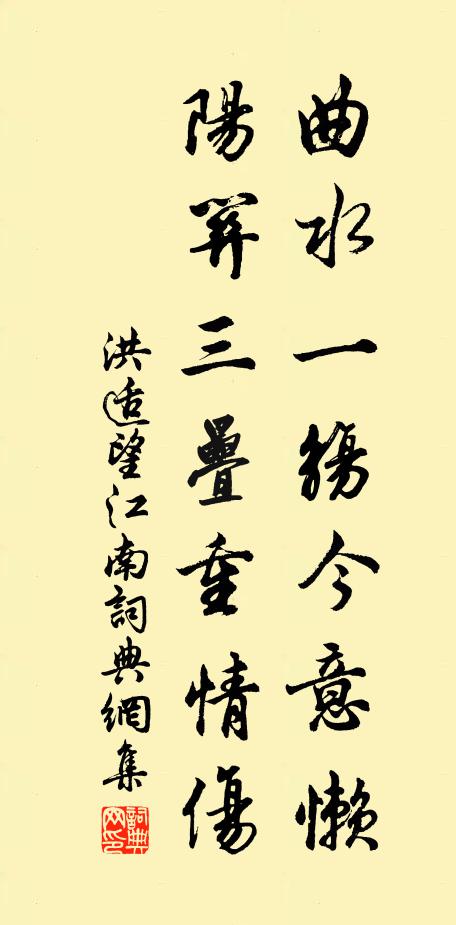 曲水一觴今意懶
陽關三疊重情傷
洪适望江南詞典網集
詞典网印